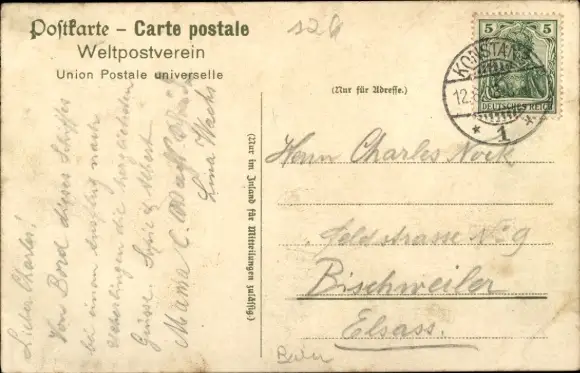 Postkarte – Carte postale
Weltpostverein
Union Postale universelle
(Nur für Adresse.)
(Nur im Inland für Mitteilungen zulässig.)
5 5
DEUTSCHES REICH
KONSTANZ
12.
* 1 *
Herrn Charles Nock
Feldstrasse No 9
Bischweiler
Elsass.
Lieber Charles!
Von Bord dieses Schiffes
bei einem Ausflug nach
die herzlichsten
Grüsse.
Mama
Lina Wachs